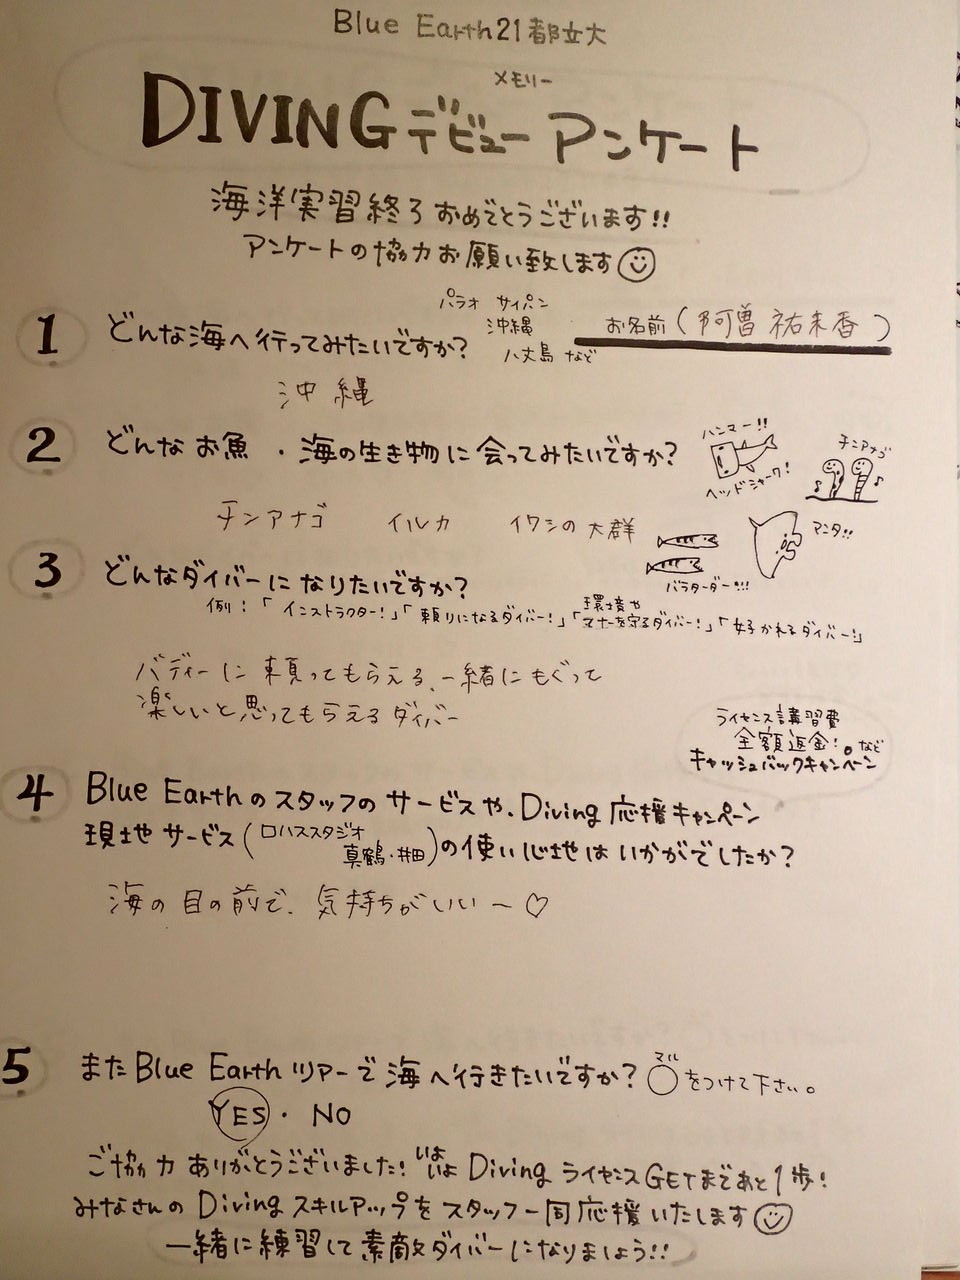 Blue Earth21都立大
メモリー
DIVING デビュー アンケート
海洋実習終了おめでとうございます!!
アンケートの協力お願い致します
1 どんな海へ行ってみたいですか?
パラオ サイパン
沖縄
八丈島 など
お名前(阿曽 祐未香)
沖縄
2 どんなお魚・海の生き物に会ってみたいですか?
ハンマー!!
ヘッドシャーク!
チンアナゴ
チンアナゴ イルカ イワシの大群
マンタ!!
バラクーダー!!!
3 どんなダイバーになりたいですか?
例:「インストラクター!」「頼りになるダイバー!」「環境やマナーを守るダイバー!」「好かれるダイバー!」
バディーに頼ってもらえる、一緒にもぐって
楽しいと思ってもらえるダイバー
ライセンス講習費
全額返金!。など
キャッシュバックキャンペーン
4 Blue Earthのスタッフのサービスや、Diving応援キャンペーン
現地サービス(ロハススタジオ
真鶴・井田)の使い心地はいかがでしたか?
海の目の前で、気持ちがいい〜♡
5 またBlue Earthツアーで海へ行きたいですか?
マル
○をつけて下さい。
YES・NO
ご協力ありがとうございました!いよいよDivingライセンスGETまであと1歩!
みなさんのDivingスキルアップをスタッフ一同応援いたします
一緒に練習して素敵ダイバーになりましょう!!